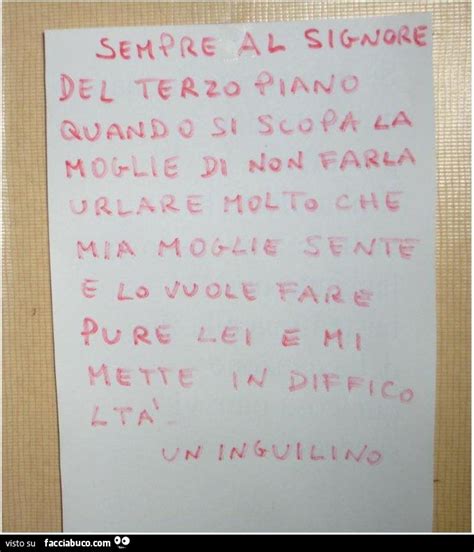 SEMPRE AL SIGNORE
DEL TERZO PIANO
QUANDO SI SCOPA LA
MOGLIE DI NON FARLA
URLARE MOLTO CHE
MIA MOGLIE SENTE
E LO VUOLE FARE
PURE LEI E MI
METTE IN DIFFICO
LTÀ.
UN INGUILINO
visto su facciabuco.com